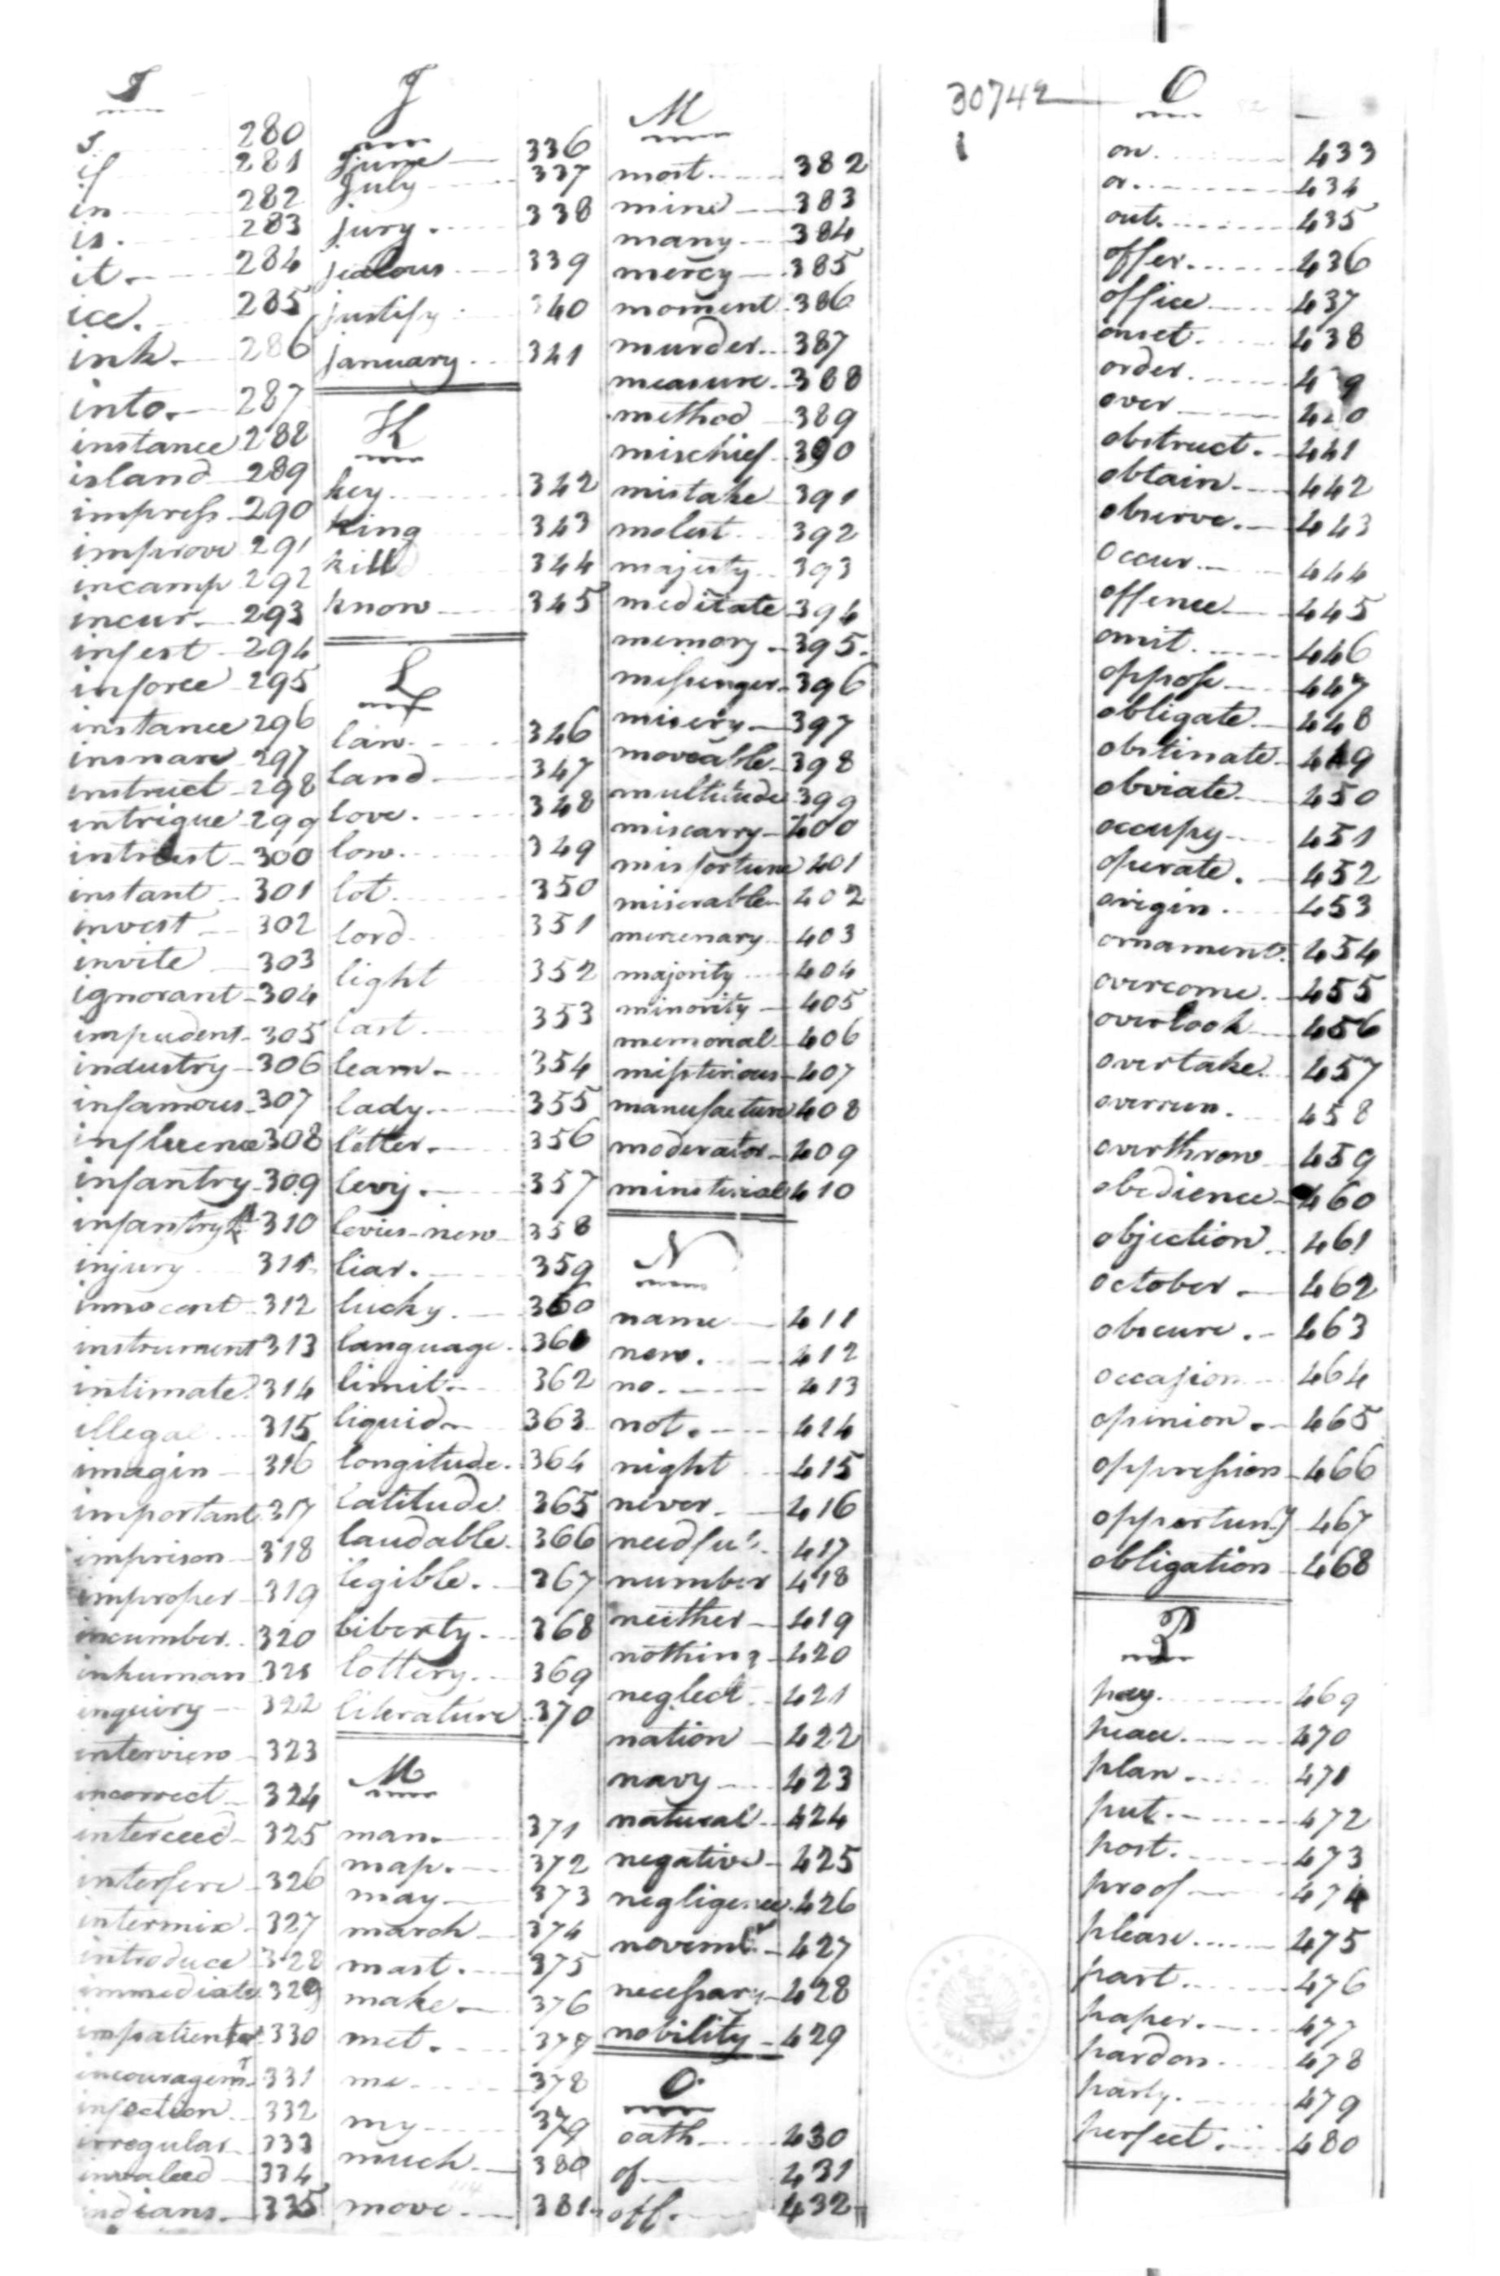 I
I 280
if 281
in 282
is. 283
it. 284
ice. 285
ink. 286
into. 287
instance 288
island 289
impress 290
improve 291
incamp 292
incur. 293
infest 294
inforce 295
instance 296
insnare 297
instruct 298
intrigue 299
intrust 300
instant 301
invest 302
invite 303
ignorant 304
impudent 305
industry 306
infamous 307
influence 308
infantry 309
infantry 310
injury 311
innocent 312
instrument 313
intimate 314
illegal 315
imagin 316
important 317
imprison 318
improper 319
incumber 320
inhuman 321
inquiry 322
interview 323
incorrect 324
interceed 325
interfere 326
intermix 327
introduce 328
immediate 329
impatient 330
incouragemt. 331
infection 332
irregular 333
invaleed 334
indians 335
J
june 336
july 337
jury. 338
jealous 339
justify 340
january 341
K
key 342
king 343
kill 344
know 345
L
law. 346
land 347
love. 348
low. 349
lot. 350
lord 351
light 352
last. 353
learn. 354
lady. 355
letter. 356
levy. 357
levies-new 358
liar. 359
lucky. 360
language. 361
limit. 362
liquid 363
longitude. 364
latitude 365
laudable. 366
legible. 367
liberty. 368
lottery. 369
literature 370
M
man. 371
map. 372
may 373
march 374
mast. 375
make. 376
met. 377
me 378
my 379
much. 380
move 381
M
most. 382
mine 383
many 384
mercy 385
moment 386
murder. 387
measure. 388
method 389
mischief. 390
mistake 391
molest. 392
majesty 393
meditate 394
memory 395.
messenger 396
misery 397
moveable 398
multitude 399
miscarry 400
misfortune 401
miserable 402
mercenary 403
majority 404
minority 405
memorial 406
misterious 407
manufacture 408
moderator 409
minsterial 410
N
name 411
new. 412
no. 413
not. 414
night 415
never. 416
needful. 417
number 418
neither 419
nothing 420
neglect 421
nation 422
navy 423
natural 424
negative 425
negligence 426
novembr 427
necessary 428
nobility 429
O.
oath 430
of 431
off. 432
30742
1
O
on. 433
or. 434
out. 435
offer. 436
office 437
onset. 438
order. 439
over 440
obstruct. 441
obtain. 442
observe. 443
occur. 444
offence 445
omit. 446
oppose 447
obligate 448
obstinate 449
obviate 450
occupy 451
operate. 452
origin. 453
ornament. 454
overcome. 455
overlook 456
overtake. 457
overrun. 458
overthrow 459
obedience 460
objection 461
october. 462
obscure. 463
occasion 464
opinion. 465
oppression 466
opportunty 467
obligation 468
P
pay. 469
peace. 470
plan. 471
put. 472
post. 473
proof 474
please 475
part. 476
paper. 477
pardon 478
party. 479
perfect. 480